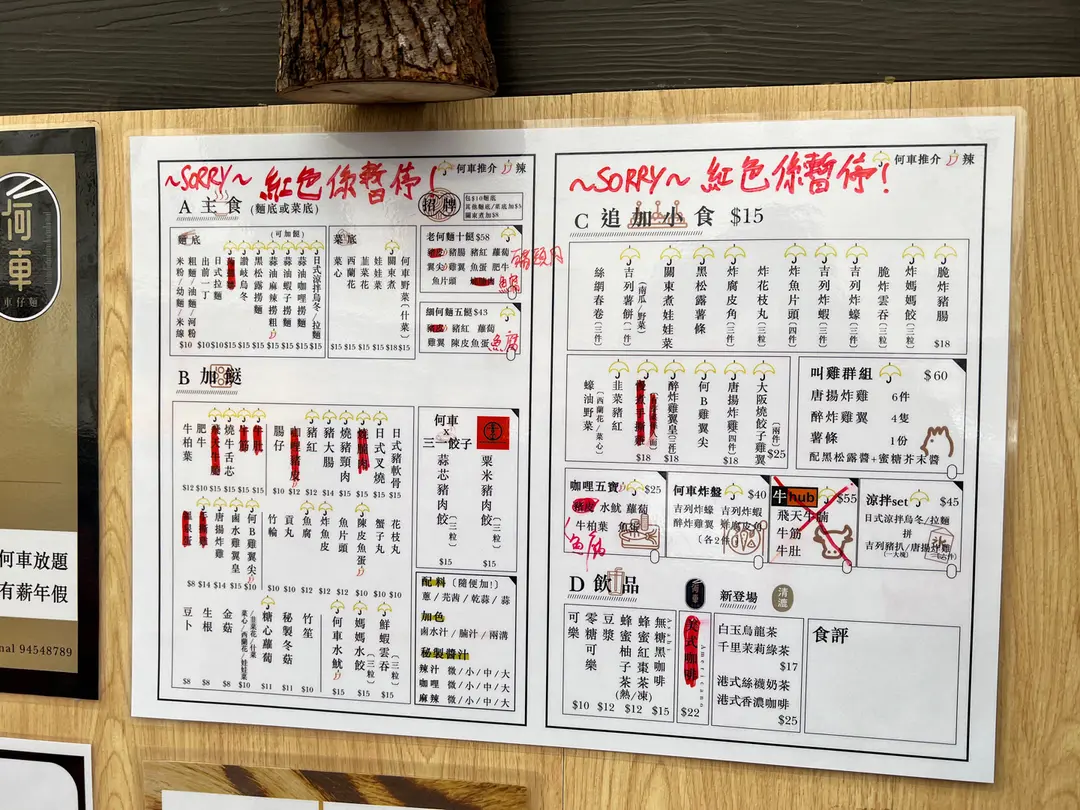 何車
車仔麵
何車放題
有薪年假
94548789
~SORRY~ 紅色係暫停!
何車推介 辣
A 主食 (麵底或菜底)
招牌
包$10麵底
其他麵底/菜底加$5
關東煮加$8
麵底 (可加餸)
米粉/幼麵/米線 $10
粗麵/油麵/河粉 $10
出前一丁 $10
日式拉麵 $10
讚岐烏冬 $15
黑松露撈麵 $15
蒜油麻辣撈粗 $15
蒜油蝦子撈麵 $15
蒜油咖喱撈麵 $15
日式涼拌烏冬/拉麵 $15
菜底
菜心 $15
西蘭花 $15
韮菜花 $15
娃娃菜 $15
關東煮 $18
何車野菜(什菜) $15
老何麵十餸 $58
豬腸 豬紅 蘿蔔
翼尖/雞翼 魚蛋 肥牛
魚片頭
魚腐
細何麵五餸 $43
豬紅 蘿蔔
雞翼 陳皮魚蛋
魚腐
B 加餸
牛柏葉 $12
肥牛 $10
燒牛舌芯 $15
牛筋 $15
牛肚 $15
腸仔 $10
咖喱豬皮 $12
豬紅 $12
豬大腸 $14
燒豬頸肉 $15
日式叉燒 $15
日式豬軟骨 $15
唐揚炸雞 $14
鹵水雞翼皇 $15
何B雞翼尖 $10
竹輪
貢丸
魚腐
炸魚皮
魚片頭
陳皮魚蛋
蟹子丸
花枝丸
豆卜 $8
生根 $8
金菇 $8
韮菜花/什菜
菜心/西蘭花/娃娃菜 $10
糖心蘿蔔 $11
秘製冬菇 $11
竹笙 $10
何車水魷 $15
媽媽水餃(三粒) $15
鮮蝦雲吞(三粒) $15
何車
x
三一餃子
蒜芯豬肉餃(三粒) $15
粟米豬肉餃(三粒) $15
配料 (隨便加!)
蔥/芫茜/乾蒜/蒜
加色
鹵水汁/腩汁/兩溝
秘製醬汁
辣汁 微/小/中/大
咖喱 微/小/中/大
麻辣 微/小/中/大
~SORRY~ 紅色係暫停!
何車推介 辣
C 追加小食 $15
絲網春卷(三件)
吉列薯餅(一件)(南瓜/野菜)
關東煮娃娃菜
黑松露薯條
炸腐皮角(三件)
炸花枝丸(三粒)
炸魚片頭(四件)
吉列炸蝦(三件)
吉列炸蠔(三件)
脆炸雲吞(三件)
炸媽媽餃(三粒)
脆炸豬腸 $18
蠔油野菜(西蘭花/菜心)
韮菜豬紅
慢煮手撕雞 $18
醉炸雞翼皇(三件) $18
何B雞翼尖
唐揚炸雞(四件) $18
大阪燒餃子雞翼(兩件) $25
叫雞群組 $60
唐揚炸雞 6件
醉炸雞翼 4隻
薯條 1份
配黑松露醬+蜜糖芥末醬
咖喱五寶 $25
豬皮 水魷 蘿蔔
牛柏葉 魚蛋
魚腐
何車炸盤 $40
吉列炸蠔 吉列炸蝦
醉炸雞翼 炸腐皮角
(各2件)
牛hub $55
飛天牛腩
牛筋
牛肚
涼拌set $45
日式涼拌烏冬/拉麵
拼
吉列豬扒/唐揚炸雞
(一大塊) (三件)
D 飲品
可樂 $10
零糖可樂
豆漿 $12
蜂蜜柚子茶(熱/凍) $12
蜂蜜紅棗茶
無糖黑咖啡 $15
美式咖啡 Americano $22
新登場
清溫
白玉烏龍茶
千里茉莉綠茶
$17
港式絲襪奶茶
港式香濃咖啡
$25
食評